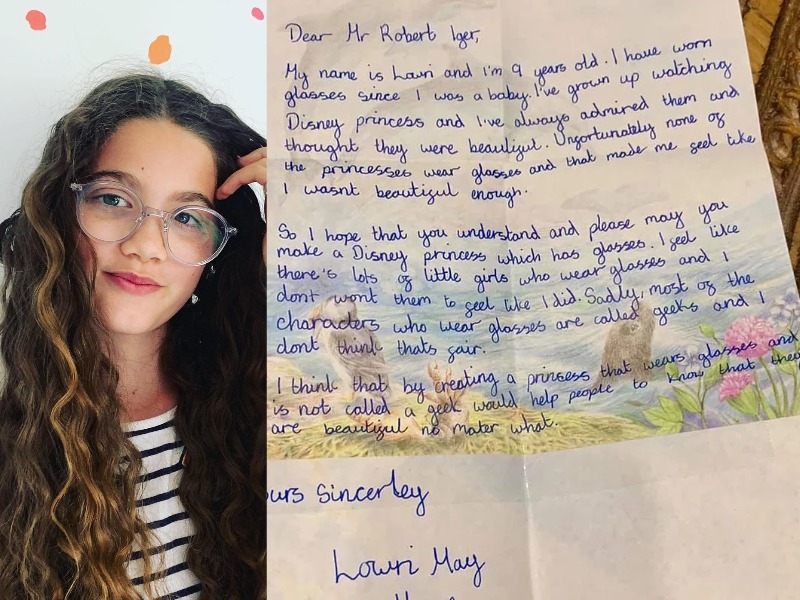 Dear Mr Robert Iger,
My name is Lowri and I'm 9 years old. I have worn
glasses since I was a baby. I've grown up watching
Disney princess and I've always admired them and
thought they were beautiful. Unfortunately none of
the princesses wear glasses and that made me feel like
I wasnt beautiful enough.
So I hope that you understand and please may you
make a Disney princess which has glasses. I feel like
there's lots of little girls who wear glasses and I
dont wont them to feel like I did. Sadly, most of the
characters who wear glasses are called geeks and I
dont think thats fair.
I think that by creating a princess that wears glasses and
is not called a geek would help people to know that they
are beautiful no mater what.
ours Sincerley
Lowri May